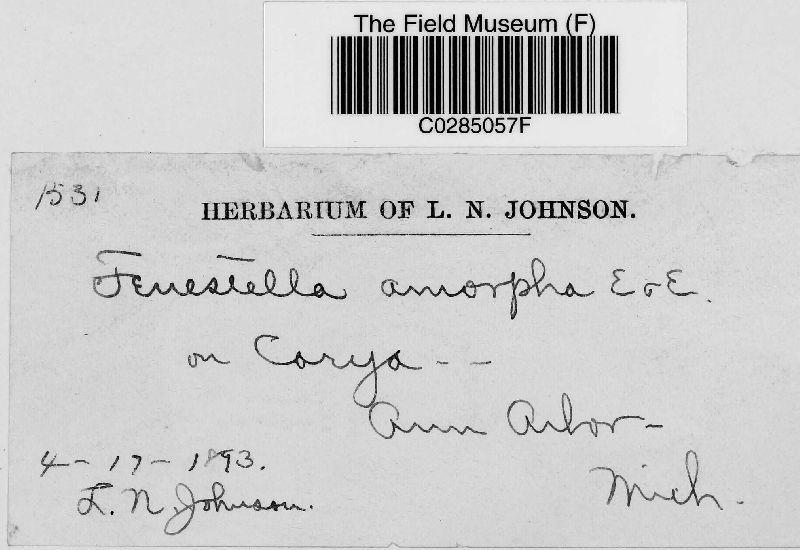 The Field Museum (F)
C0285057F
1531
HERBARIUM OF L. N. JOHNSON.
Fenestella amorpha E & E.
on Carya - -
Ann Arbor -
Mich.
4 - 17 - 1893.
L. N. Johnson.